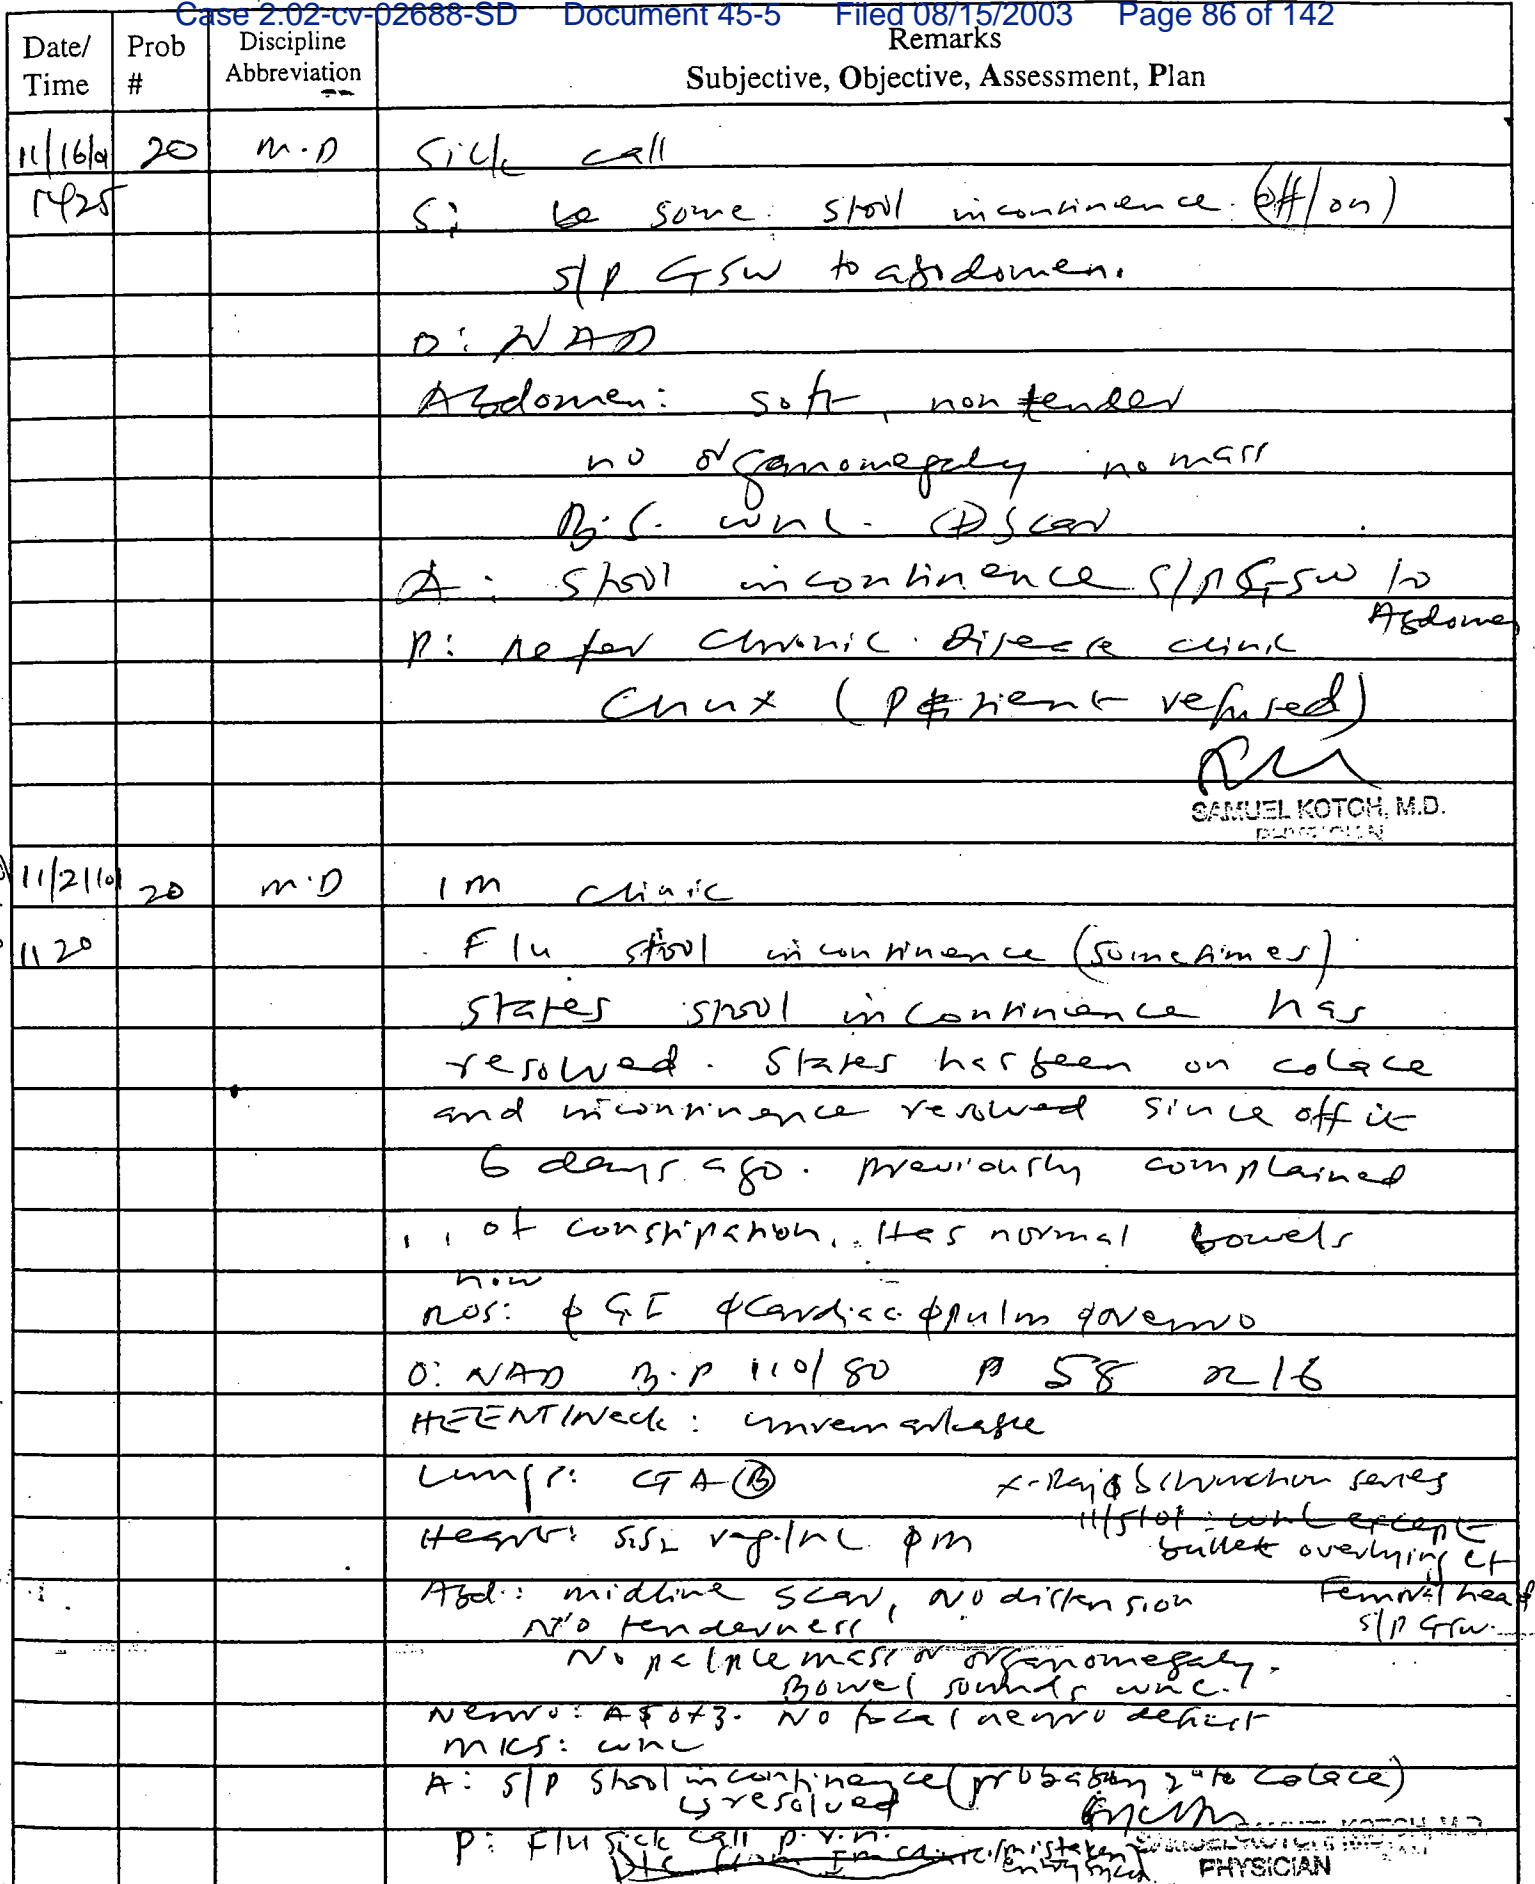 Case 2:02-cv-02688-SD Document 45-5 Filed 08/15/2003 Page 86 of 142
Date/ Time Prob # Discipline Abbreviation Remarks
Subjective, Objective, Assessment, Plan
11/16/01 20 M.D Sick call
1425 S: some stool incontinence (off/on)
s/p GSW to abdomen.
O: NAD
Abdomen: soft, non tender
no organomegaly no mass
B.S. wnl. (+) Scar
A: Stool incontinence s/p GSW to Abdomen
P: Refer Chronic Disease clinic
Chux (patient refused)
SAMUEL KOTCH, M.D.
PHYSICIAN
11/21/01 20 M.D IM Clinic
1120 F/u stool incontinence (sometimes)
states stool incontinence has
resolved. States has been on colace
and incontinence resolved since off it
6 days ago. previously complained
of constipation. Has normal bowels
now
ROS: φ GI φ Cardiac φ pulm φ neuro
O: NAD B.P 110/80 P 58 R 16
HEENT/Neck: unremarkable
Lungs: CTA Ⓑ X-Ray obstruction series
11/5/01: wnl except
Heart: S1S2 reg. φ m bullet overlying Lt
Femoral head
s/p GSW.
Abd.: midline scar, No distension
No tenderness
No palple mass or organomegaly.
Bowel sounds wnl.
Neuro: A & O x 3. No focal neuro deficit
MKS: wnl
A: s/p Stool incontinence (probably 2° to Colace)
is resolved
P: F/u sick call p.r.n.
D/C from IM Clinic/mistaken entry
SAMUEL KOTCH, M.D.
PHYSICIAN